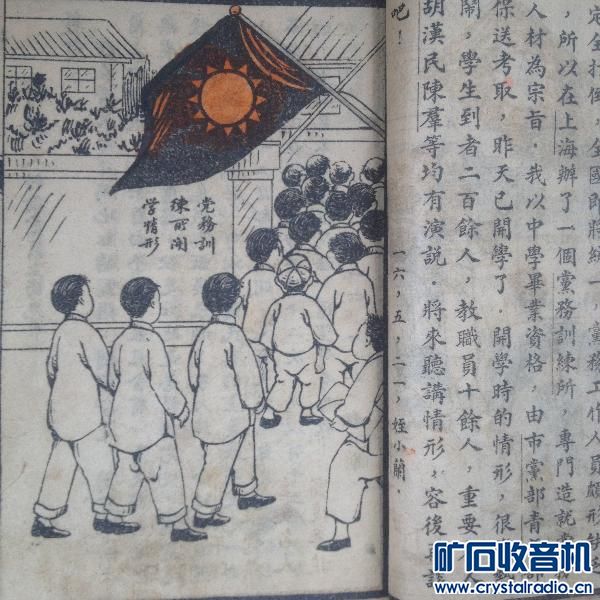 定全打倒，全國即將統一，黨務工作人員頗形缺
，所以在上海辦了一個黨務訓練所，專門造就黨
人材為宗旨．我以中學畢業資格，由市黨部青年部
保送考取，昨天已開學了．開學時的情形，很
鬧，學生到者二百餘人，教職員十餘人，重要人
胡漢民陳羣等均有演說．將來聽講情形，容後再談
吧！
一六，五，二一，姪小蘭．
党務訓
練所開
学情形
矿石收音机
www.crystalradio.cn